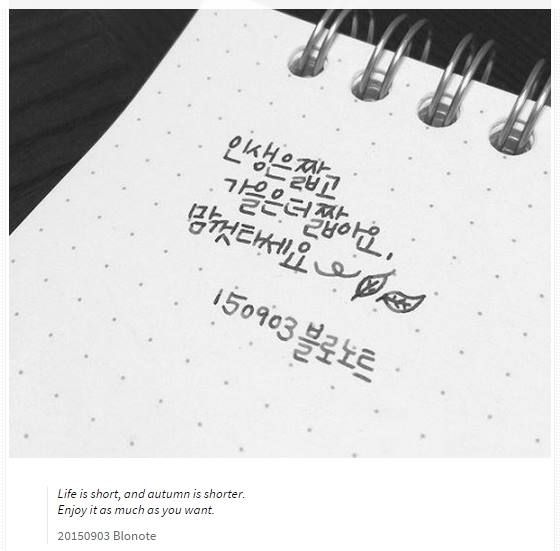 인생은 짧고
가을은 더 짧아요,
맘껏 타세요
150903 블로노트
Life is short, and autumn is shorter.
Enjoy it as much as you want.
20150903 Blonote